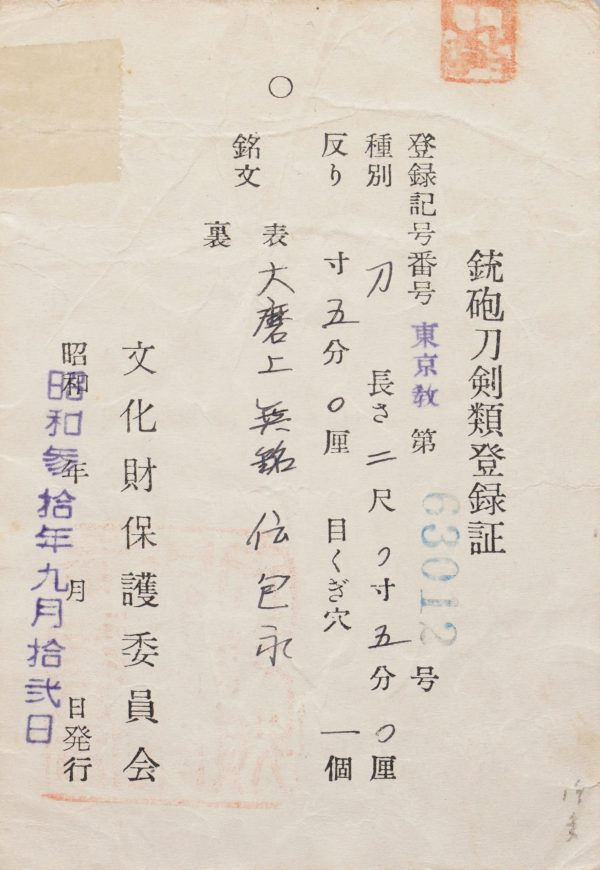 銃砲刀剣類登録証
登録記号番号 東京教 第 63012 号
種別 刀 長さ 二尺 0寸 五分 0厘
反り 寸 五分 0厘 目くぎ穴 一個
銘文 表 大磨上 無銘 伝包永
裏
文化財保護委員会
昭和 年 月 日発行
昭和参拾年九月拾弐日